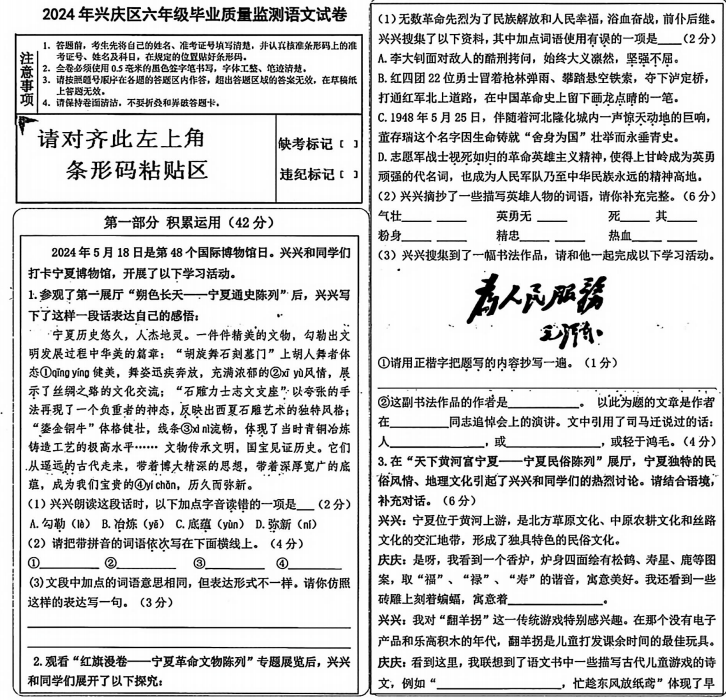 2024年兴庆区六年级毕业质量监测语文试卷
注意事项
1. 答题前，考生先将自己的姓名、准考证号填写清楚，并认真核准条形码上的准
考证号、姓名及科目，在规定的位置贴好条形码。
2. 全卷必须使用0.5毫米的黑色签字笔书写，字体工整、笔迹清楚。
3. 请按照题号顺序在各题的答题区内作答，超出答题区域的答案无效，在草稿纸
上答题无效。
4. 请保持卷面清洁，不要折叠和弄破答题卡。
请对齐此左上角
条形码粘贴区
缺考标记【 】
违纪标记【 】
第一部分 积累运用（42分）
2024年5月18日是第48个国际博物馆日。兴兴和同学们
打卡宁夏博物馆，开展了以下学习活动。
1.参观了第一展厅“朔色长天——宁夏通史陈列”后，兴兴写
下了这样一段话表达自己的感悟：
宁夏历史悠久，人杰地灵。一件件精美的文物，勾勒出文
明发展过程中华美的篇章；“胡旋舞石刻墓门”上胡人舞者体
态①qīng yíng 健美，舞姿迅疾奔放，充满浓郁的②xī yù风情，展
示了丝绸之路的文化交流；“石雕力士志文支座”以夸张的手
法再现了一个负重者的神态，反映出西夏石雕艺术的独特风格；
“鎏金铜牛”体格健壮，线条③xì nì流畅，体现了当时青铜冶炼
铸造工艺的极高水平…… 文物传承文明，国宝见证历史。它们
从遥远的古代走来，带着博大精深的思想，带着深厚宽广的底
蕴，成为我们宝贵的④yí chǎn，历久而弥新。
（1）兴兴朗读这段话时，以下加点字音读错的一项是___（2分）
A. 勾勒（lè） B. 冶炼（yě） C. 底蕴（yùn） D. 弥新（ní）
（2）请把带拼音的词语依次写在下面横线上。（4分）
①________ ②________ ③________ ④________
（3）文段中加点的词语意思相同，但表达形式不一样。请你仿照
这样的表达写一句。（3分）
2. 观看“红旗漫卷——宁夏革命文物陈列”专题展览后，兴兴
和同学们展开了以下探究：
（1）无数革命先烈为了民族解放和人民幸福，浴血奋战，前仆后继。
兴兴搜集了以下资料，其中加点词语使用有误的一项是___（2分）
A. 李大钊面对敌人的酷刑拷问，始终大义凛然，坚强不屈。
B. 红四团22位勇士冒着枪林弹雨、攀踏悬空铁索，夺下泸定桥，
打通红军北上道路，在中国革命史上留下画龙点睛的一笔。
C. 1948年5月25日，伴随着河北隆化城内一声惊天动地的巨响，
董存瑞这个名字因生命铸就“舍身为国”壮举而永垂青史。
D. 志愿军战士视死如归的革命英雄主义精神，使得上甘岭成为英勇
顽强的代名词，也成为人民军队乃至中华民族永远的精神高地。
（2）兴兴摘抄了一些描写英雄人物的词语，请你补充完整。（6分）
气壮____ ____ 英勇无 ____ 死____ 其____
粉身____ ____ 精忠____ ____ 热血____ ____
（3）兴兴搜集到了一幅书法作品，请和他一起完成以下学习活动。
为人民服务
毛泽东
①请用正楷字把题写的内容抄写一遍。（1分）
②这副书法作品的作者是__________。 以此为题的文章是作者
在__________同志追悼会上的演讲。文中引用了司马迁说过的话：
人__________，或__________，或轻于鸿毛。（4分）
3. 在“天下黄河富宁夏——宁夏民俗陈列”展厅，宁夏独特的民
俗风情、地理文化引起了兴兴和同学们的热烈讨论。请结合语境，
补充对话。（6分）
兴兴：宁夏位于黄河上游，是北方草原文化、中原农耕文化和丝路
文化的交汇地带，形成了独具特色的民俗文化。
庆庆：是呀，我看到一个香炉，炉身四面绘有松鹤、寿星、鹿等图
案，取“福”、“禄”、“寿”的谐音，寓意美好。我还看到一些
砖雕上刻着蝙蝠，寓意着______________。
兴兴：我对“翻羊拐”这一传统游戏特别感兴趣。在那个没有电子
产品和乐高积木的年代，翻羊拐是儿童打发课余时间的最佳玩具。
庆庆：看到这里，我联想到了语文书中一些描写古代儿童游戏的诗
文，例如“______________，忙趁东风放纸鸢”体现了早